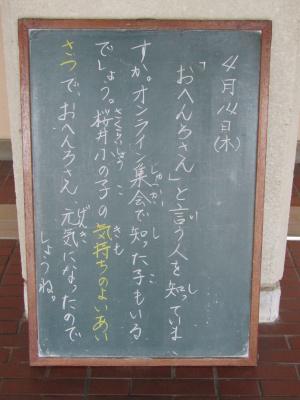 4月14日(木)
「おへんろさん」と言う人を知っていま
すか。オンライン集会で知った子もいる
でしょう。桜井小の子の気持ちのよいあい
さつで、おへんろさん、元気になったので
しょうね。